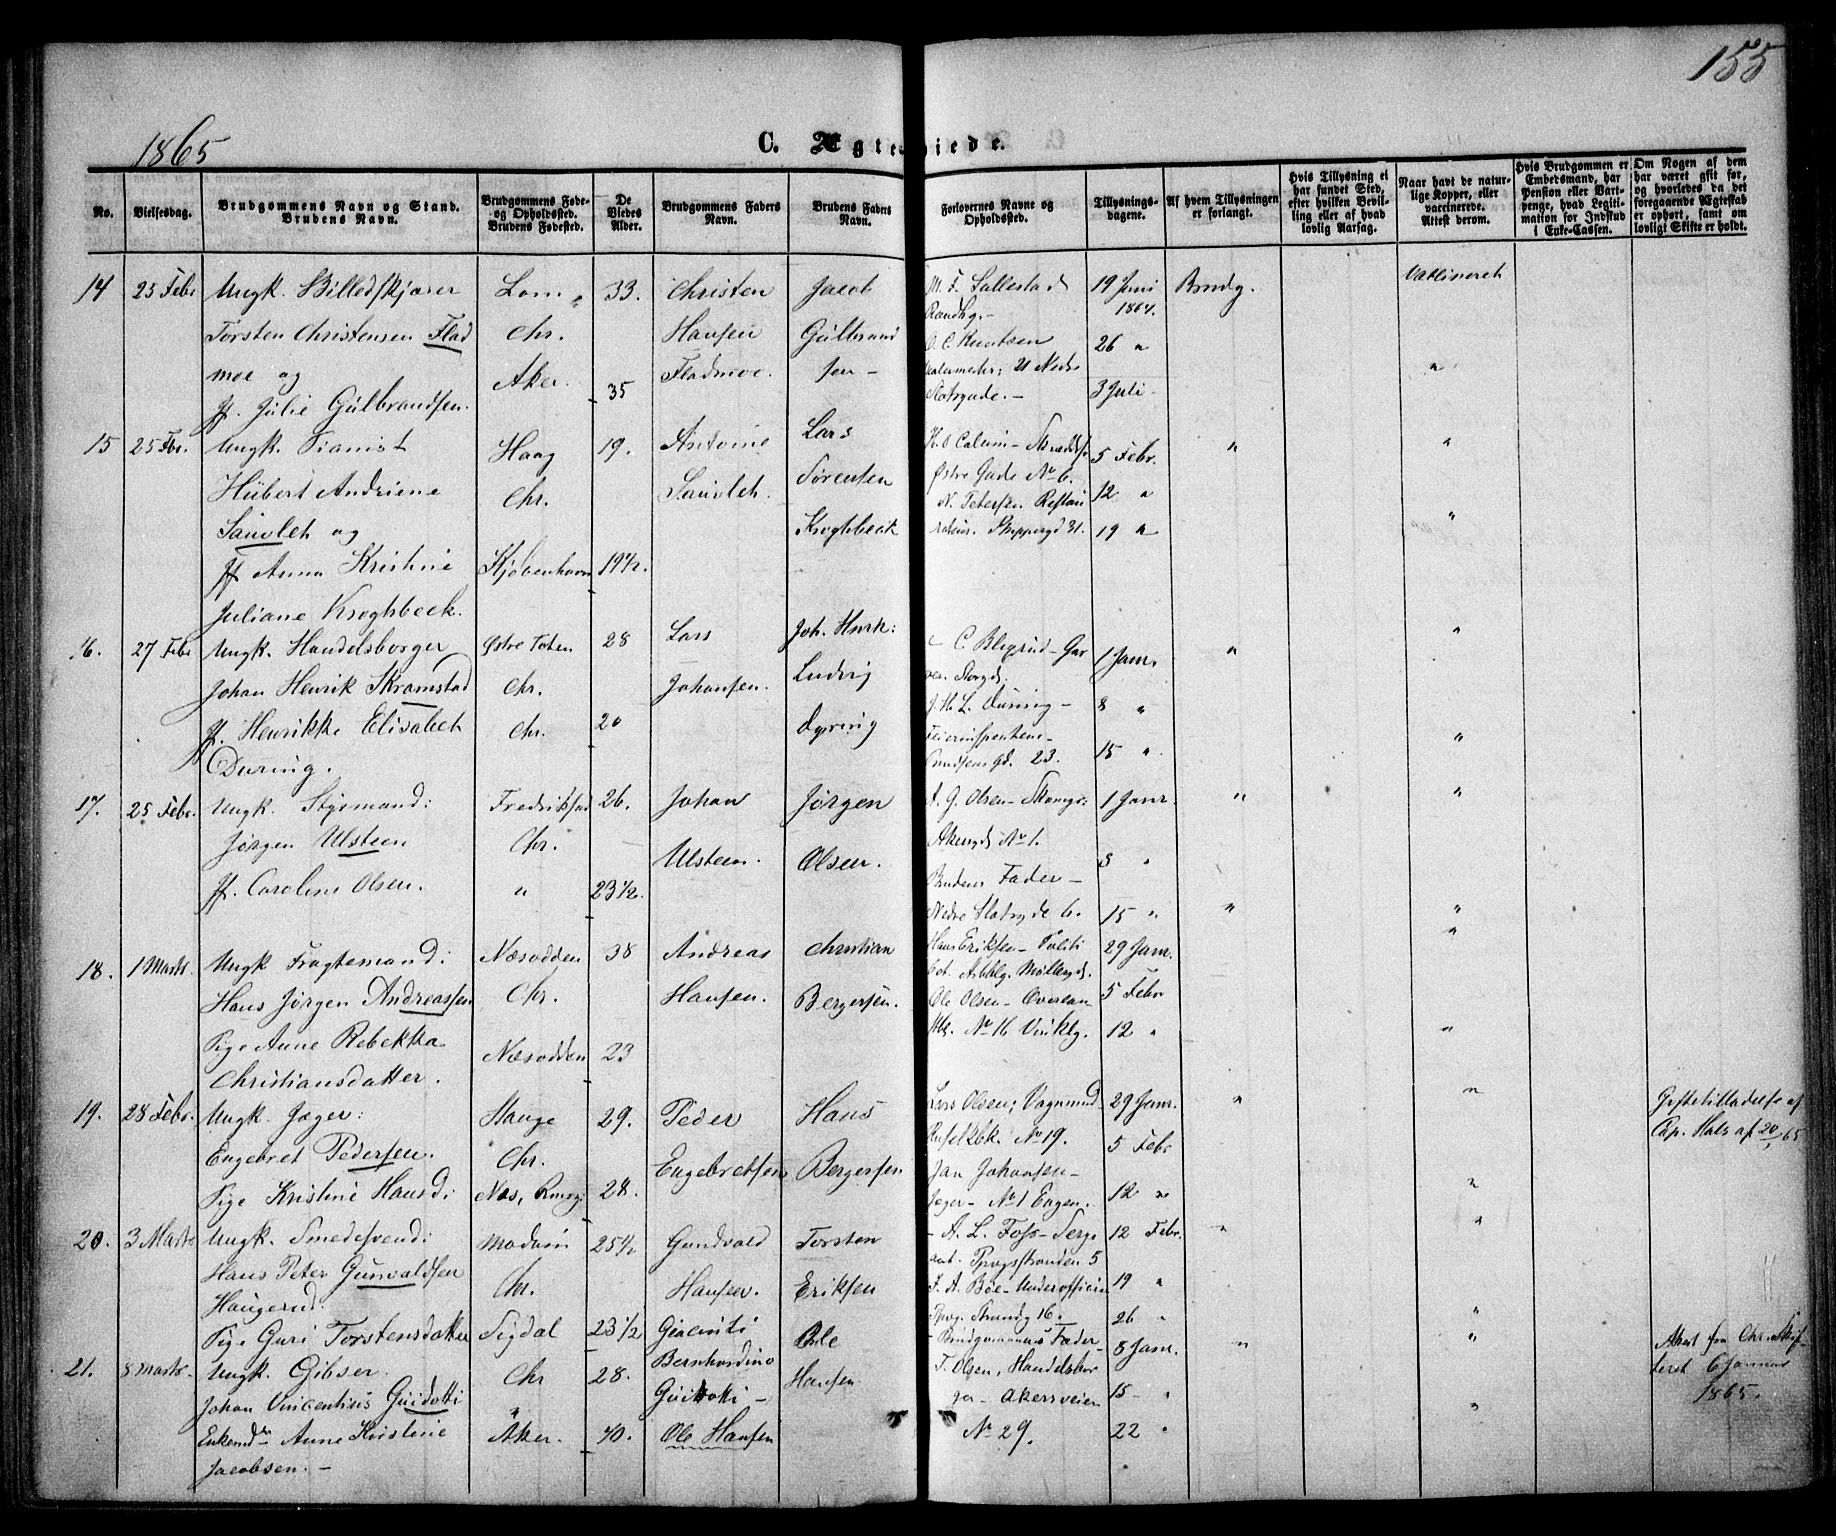 155
1865
C. Ægte iede.
No.
Vielsesdag.
Brudgommens Navn og Stand.
Brudens Navn.
Brudgommens Føde-
og Opholdssted.
Brudens Fødested.
De
Viedes
Alder.
Brudgommens Faders
Navn.
Brudens Faders
Navn.
Forlovernes Navne og
Opholdssted.
Tillysnings-
dagene.
Af hvem Tillysningen
er forlangt.
Hvis Tillysning ei
har fundet Sted,
efter hvilken Bevil-
ling eller af hvad
lovlig Aarsag.
Naar havt de natur-
lige Kopper, eller
vaccinerede.
Attest derom.
Hvis Brudgommen er
Embedsmand, har
Pension eller Vart-
penge, hvad Legiti-
mation for Indskud
i Enke-Cassen.
Om Nogen af dem
har været gift før,
og hvorledes da det
foregaaende Ægteskab
er ophørt, samt om
lovligt Skifte er holdt.
14 25 Febr Ungk. Billedskjærer Lom 33. Christen Jacob 19 Juni 1864. Brudg. Vaccineret
Torsten Christensen Flad Chr. Hansen Gulbrand O. C. Knutsen 26 "
moe og Aker. 35 Fladmoe. sen - 3 Juli. "
Jf. Julie Gulbrandsen. Slotsgade. -
15 25 Fbr. Ungk. Pianist Haag 19. Antoine Lars 5 Febr. " "
Hübert Andriene Chr. Sauvlet. Sørensen Østre Gade No 6. 12 "
Sauvlet og Kroghbeck N. Petersen Restau 19 " "
Jf Anna Kristine Kjøbenhavn 19½.
Juliane Kroghbeck.
16. 27 Febr Ungk. Handelsborger Østre Toten 28 Lars Joh. Henr: C. Blegrud - Gar 1 Janr. " "
Johan Henrik Skramstad Chr. Johansen. Ludvig ver. Storgd.
Jf. Henrikke Elisabet Chr. 20 Dyring J. H. L. During - 8 "
During. 23. 15 " "
17. 25 Febr. Ungk. Styrmand: Fredrikstad 26. Johan Jørgen A. G. Olsen - 1 Janr. " "
Jørgen Ulsteen Chr. Ulsteen. Olsen. Akersgd No 1. 8 "
Jf. Caroline Olsen. " 23½. Brudens Fader -
Nedre Slotsgde 6. 15 " " "
18. 1 Marts Ungk Fragtemand: Næsodden 38 Andreas Christian Hans Eriksen - Politi 29 Janr. "
Hans Jørgen Andreassen Chr. Hansen. Bergersen. bet. Møllergd. 5 Febr
Pige Anne Rebekka Næsodden 23 Ole Olsen - 12 " "
Christiansdatter. No 16
19. 28 Febr. Ungk. Jæger: Stange 29. Peder Hans Lars Olsen; Vognmand 29 Janr. " " Giftetilladelse af
Engebret Pedersen. Chr. Engebretsen Bergersen No 19. 5 Febr Cap. Hals af 20/1 65
Pige Kristine Hansd: Næs, Romg: 28. Jan Johansen - Jæger - No 1 Engen. 12 " "
20. 3 Marts Ungk. Smedesvend: Modum 25½ Gundvald Torsten - A. L. Foss - Serge 12 Febr. " "
Hans Peter Gunvaldsen Chr. Hansen. Eriksen ant. 5
Haugerud. F. A. Bøe - Underofficier 19 "
Pige Guri Torstensdatter Sigdal 23½ 16. 26 " "
21. 8 Marts. Ungk. Gibser. Chr 28. Giacinto Ole - Brudgommens Fader 8 Janr. " " Attest fra Chr. Skif
Johan Vincentius Guidotti " Bernhardino Hansen T. Olsen, Handelsbor 15 - " teret 6 Januar
Enkemd Anne Kristine Aker. 40. Guidotti - ger - Akersveien 22 " " 1865.
Jacobsen. - Ole Hansen No 29.